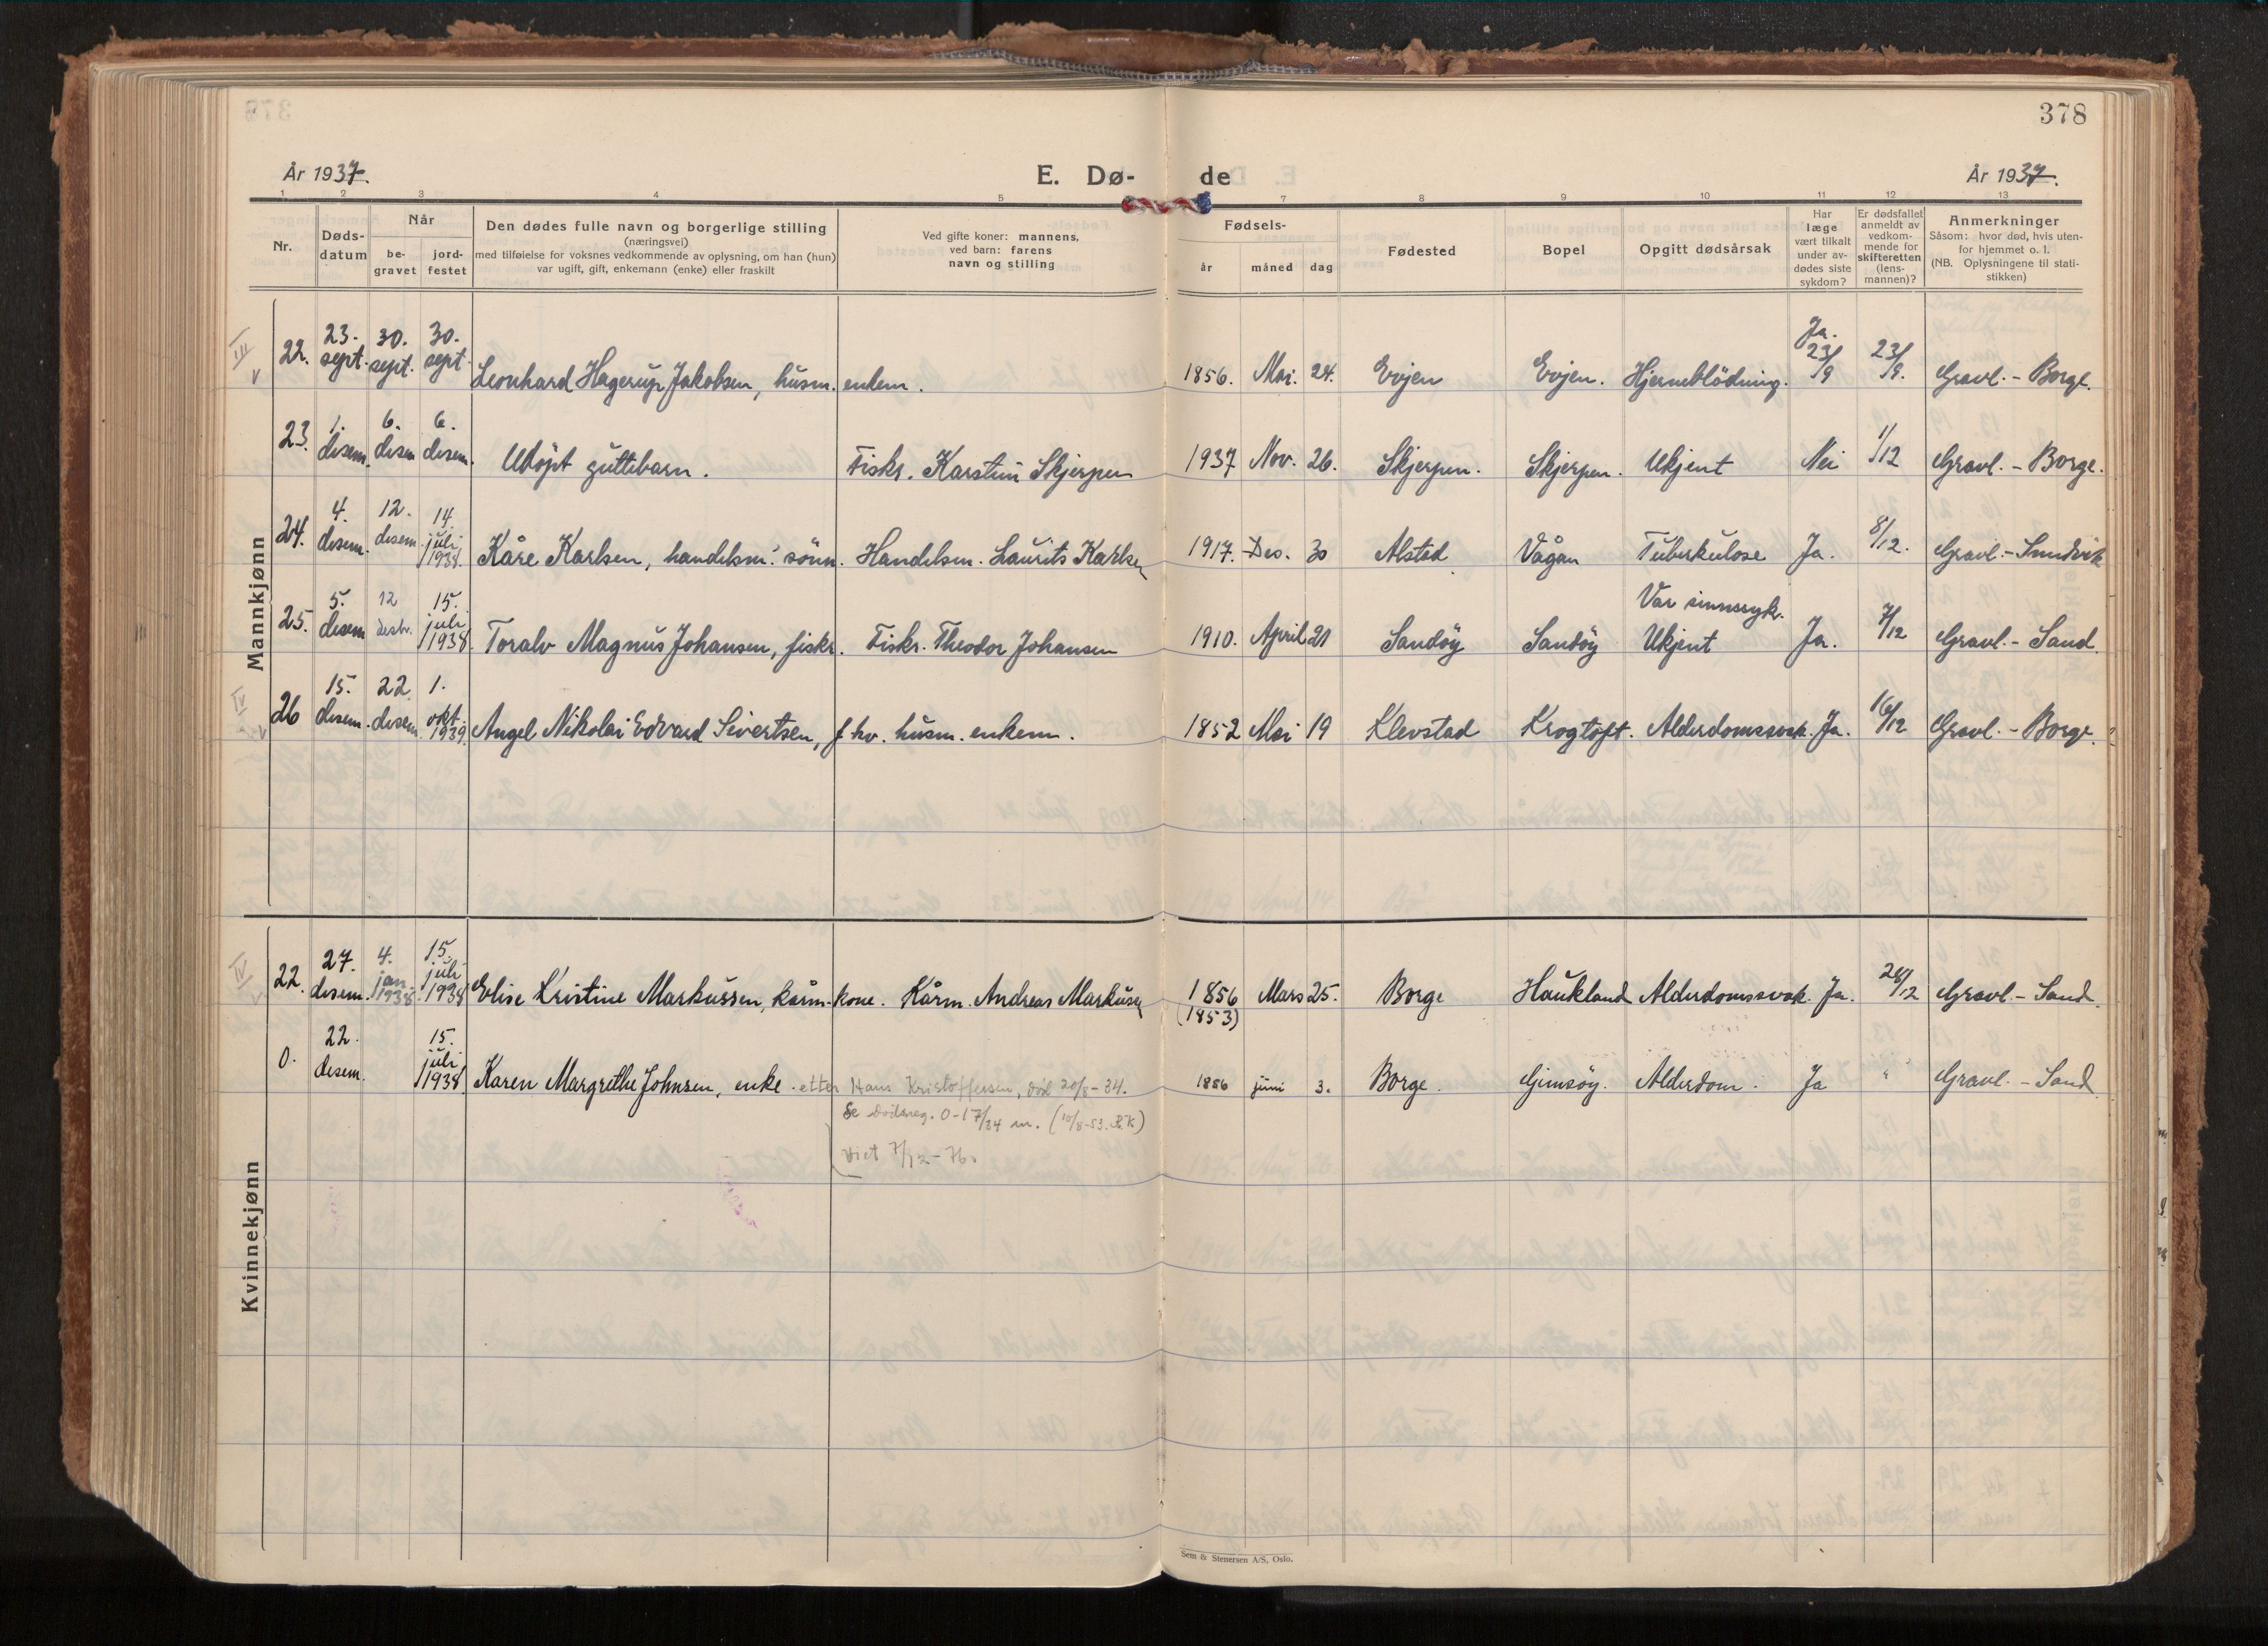 378
År 1937.
E. Dø-
de
År 1937.
1 2 3 4 5 7 8 9 10 11 12 13
Nr.
Døds-
datum
Når
be-
gravet
jord-
festet
Den dødes fulle navn og borgerlige stilling
(næringsvei)
med tilføielse for voksnes vedkommende av oplysning, om han (hun)
var ugift, gift, enkemann (enke) eller fraskilt
Ved gifte koner: mannens,
ved barn: farens
navn og stilling
Fødsels-
år
måned
dag
Fødested
Bopel
Opgitt dødsårsak
Har
læge
vært tilkalt
under av-
dødes siste
sykdom?
Er dødsfallet
anmeldt av
vedkom-
mende for
skifteretten
(lens-
mannen)?
Anmerkninger
Såsom: hvor død, hvis uten-
for hjemmet o. l.
(NB. Oplysningene til stati-
stikken)
Mannkjønn
III v 22. 23. sept. 30. sept. 30. sept. Leonhard Hagerup Jakobsen, husm. enkem. 1856. Mai. 24. Evjen Evjen. Hjerneblödning. Ja. 23/9 23/9. Gravl. - Borge.
23. 1. desem. 6. desem 6. desem. Udöpt guttebarn. Fiskr. Karstein Skjerpen 1937 Nov. 26. Skjerpen. Skjerpen. Ukjent Nei 1/12 Gravl. - Borge.
24. 4. desem. 12. desem. 14. juli 1938. Kåre Karlsen, handelsm. sönn. Handelsm. Laurits Karlsen 1917. Des. 30 Alstad Vågan Tuberkulose Ja. 8/12. Gravl. - Sundvik
25. 5. desem 12 desbr. 15. juli 1938. Toralv Magnus Johansen, fiskr. Fiskr. Theodor Johansen 1910. April 21 Sandöy Sandöy Var sinnssyk. Ukjent Ja. 7/12 Gravl. - Sand.
IV v 26 15. desem. 22. desem. 1. okt. 1939. Angel Nikolai Edvard Sivertsen, f hv. husm. enkem. 1852 Mai 19 Klevstad Krogtoft. Alderdomssvak. Ja. 16/12 Gravl. - Borge.
Kvinnekjønn
IV v 22. 27. desem. 4. jan. 1938. 15. juli 1938 Elise Kristine Markussen, kårm.kone. Kårm. Andreas Markusen 1856 (1853) Mars 25. Borge Haukland Alderdomssvak. Ja. 28/12 Gravl. - Sand.
0. 22. desem. 15. juli 1938. Karen Margrethe Johnsen, enke etter Hans Kristoffersen, död 20/8 - 34. 1856 juni 3. Borge. Gimsöy. Alderdom. Ja " Gravl. - Sand
Se dödsreg. 0-17/34 m. (10/8-53. R.K)
viet 7/12 - 76.
Sem & Stenersen A/S, Oslo.